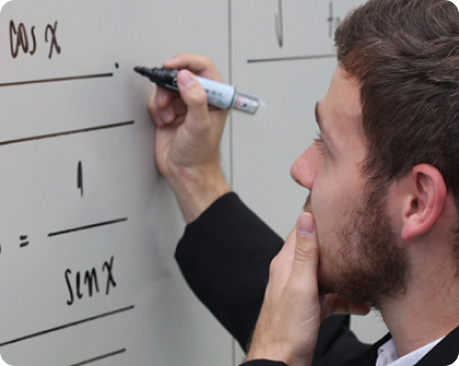 cos x
1
=
sin x